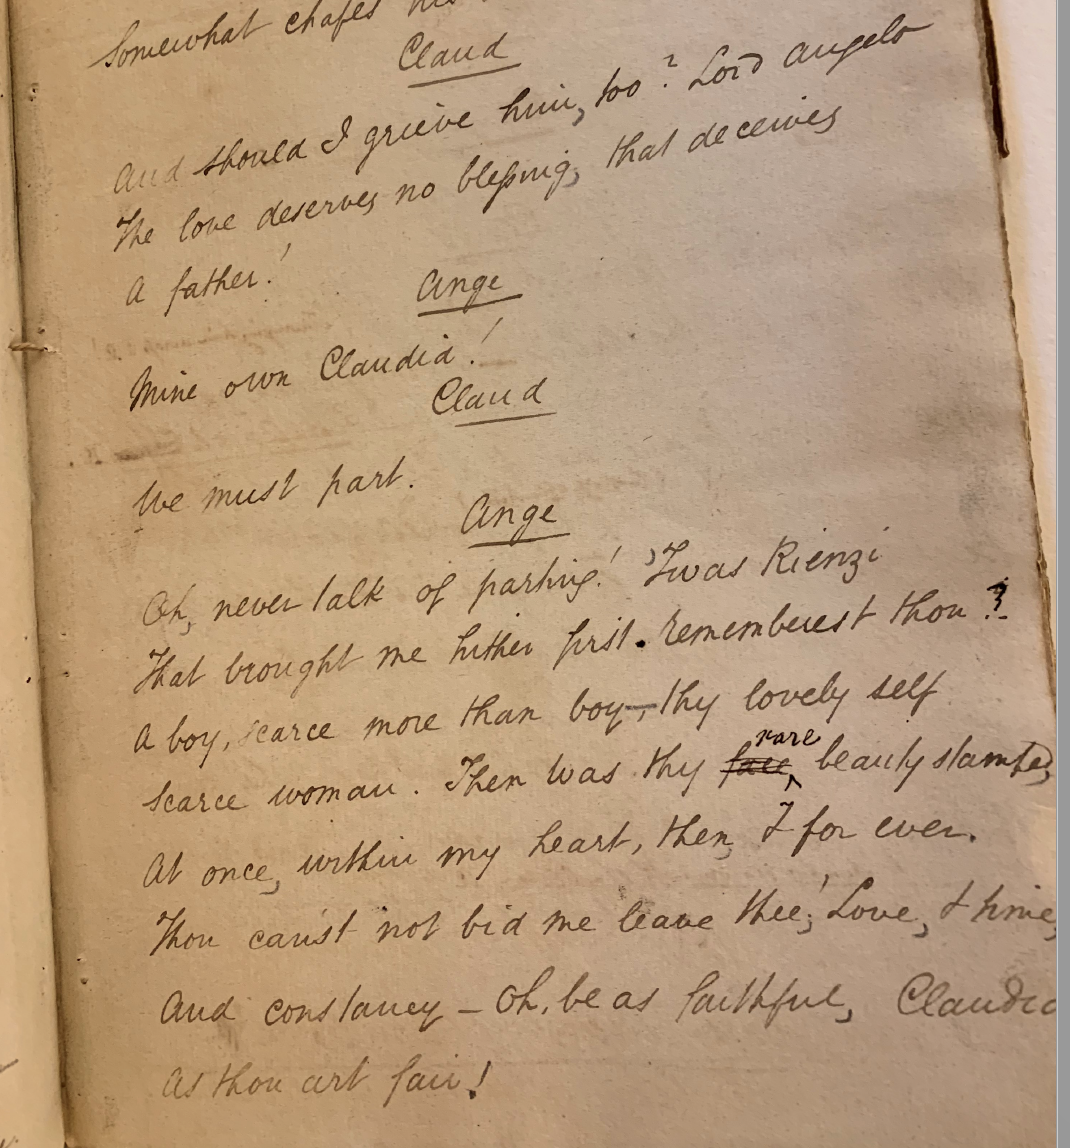 Somewhat chafes his
Claud
And should I grieve him, too? Lord Angelo
The love deserves no bleſsing, that deceives
A father!
Ange
Mine own Claudia!
Claud
We must part.
Ange
Oh, never talk of parting! 'Twas Rienzi
That brought me hither first. rememberest thou?
A boy, scarce more than boy—, thy lovely self
Scarce woman. Then was thy rare beauty stamped,
At once, within my heart, then, & for ever.
Thou canst not bid me leave thee; Love, & time,
And constancy – Oh, be as faithful, Claudia
As thou art fair!